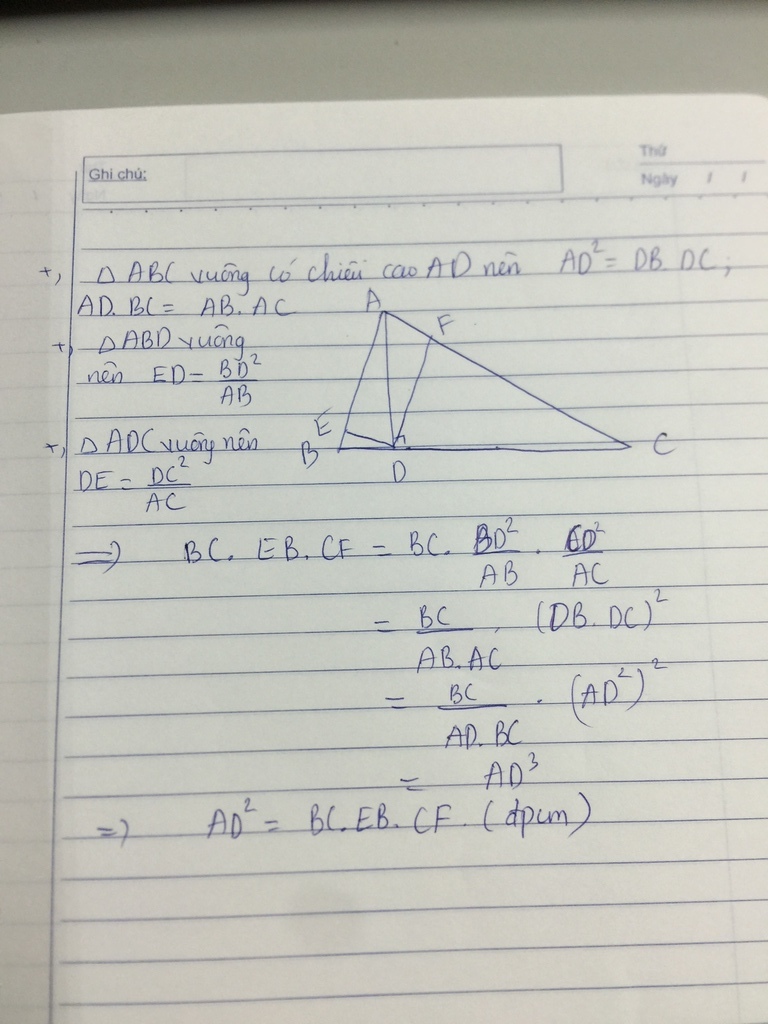 Ghi chú:
Thứ
Ngày / /
+, △ ABC vuông có chiều cao AD nên AD² = DB. DC;
AD. BC = AB. AC
+, △ ABD vuông
nên ED = BD²/AB
+, △ ADC vuông nên
DE = DC²/AC
A
F
E
B
D
C
=> BC. EB. CF = BC. BD²/AB . CD²/AC
= BC/AB.AC . (DB. DC)²
= BC/AD. BC . (AD²)²
= AD³
=> AD² = BC. EB. CF. (đpcm)